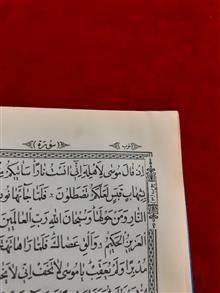 سورة
إِذْ قَالَ مُوسَىٰ لِأَهْلِهِ إِنِّي آنَسْتُ نَارًا سَآتِيكُمْ
بِشِهَابٍ قَبَسٍ لَعَلَّكُمْ تَصْطَلُونَ فَلَمَّا جَاءَهَا نُودِ
النَّارِ وَمَنْ حَوْلَهَا وَسُبْحَانَ اللَّهِ رَبِّ الْعَالَمِينَ
الْعَزِيزُ الْحَكِيمُ وَأَلْقِ عَصَاكَ فَلَمَّا رَآهَا تَهْتَزُّ
مُدْبِرًا وَلَمْ يُعَقِّبْ يَا مُوسَىٰ لَا تَخَفْ إِنِّي لَا يَخَا